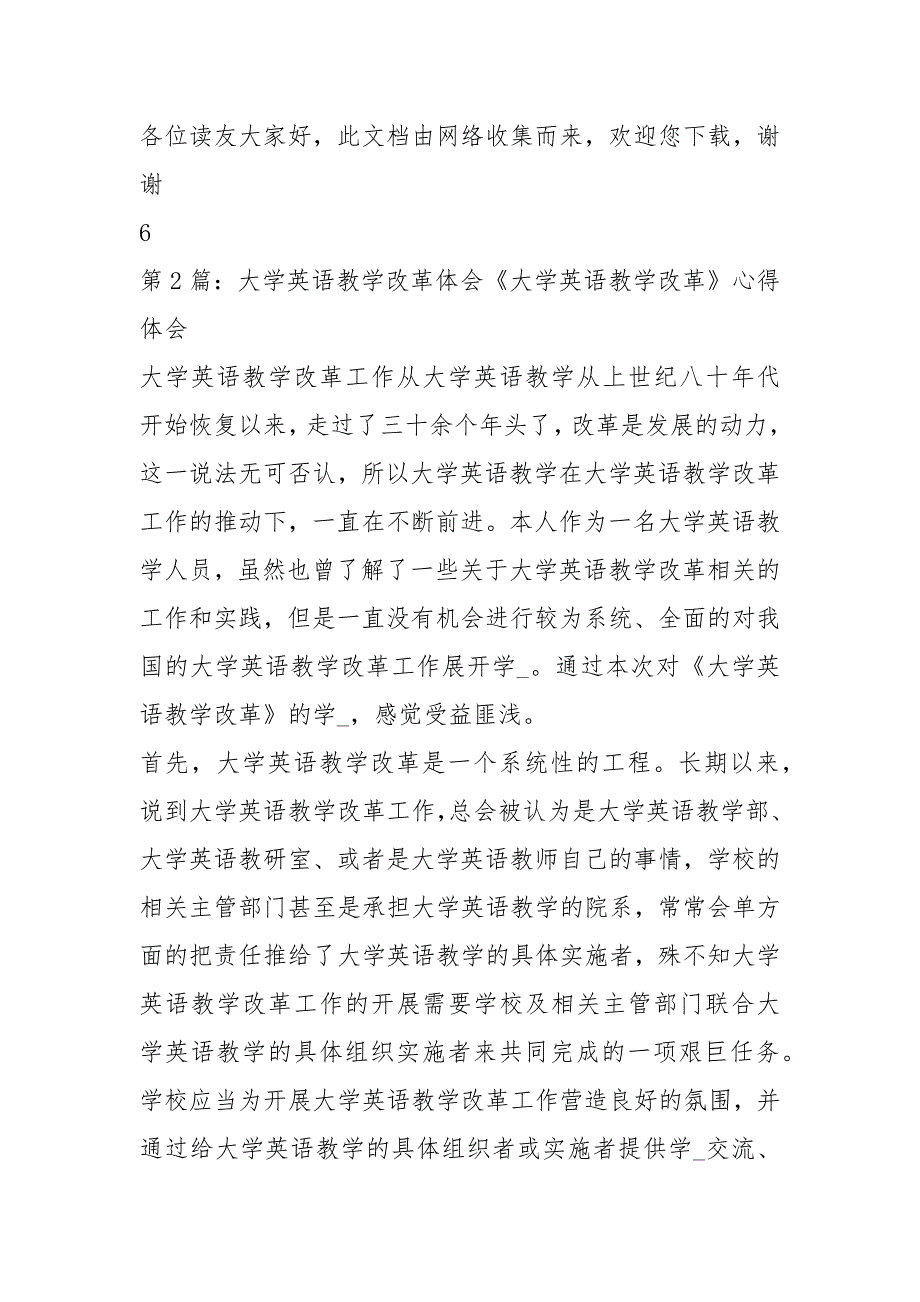 各位读友大家好，此文档由网络收集而来，欢迎您下载，谢
谢
6
第 2 篇：大学英语教学改革体会《大学英语教学改革》心得
体会
大学英语教学改革工作从大学英语教学从上世纪八十年代
开始恢复以来，走过了三十余个年头了，改革是发展的动力，
这一说法无可否认，所以大学英语教学在大学英语教学改革
工作的推动下，一直在不断前进。本人作为一名大学英语教
学人员，虽然也曾了解了一些关于大学英语教学改革相关的
工作和实践，但是一直没有机会进行较为系统、全面的对我
国的大学英语教学改革工作展开学_。通过本次对《大学英
语教学改革》的学_，感觉受益匪浅。
首先，大学英语教学改革是一个系统性的工程。长期以来，
说到大学英语教学改革工作，总会被认为是大学英语教学部、
大学英语教研室、或者是大学英语教师自己的事情，学校的
相关主管部门甚至是承担大学英语教学的院系，常常会单方
面的把责任推给了大学英语教学的具体实施者，殊不知大学
英语教学改革工作的开展需要学校及相关主管部门联合大
学英语教学的具体组织实施者来共同完成的一项艰巨任务。
学校应当为开展大学英语教学改革工作营造良好的氛围，并
通过给大学英语教学的具体组织者或实施者提供学_交流、